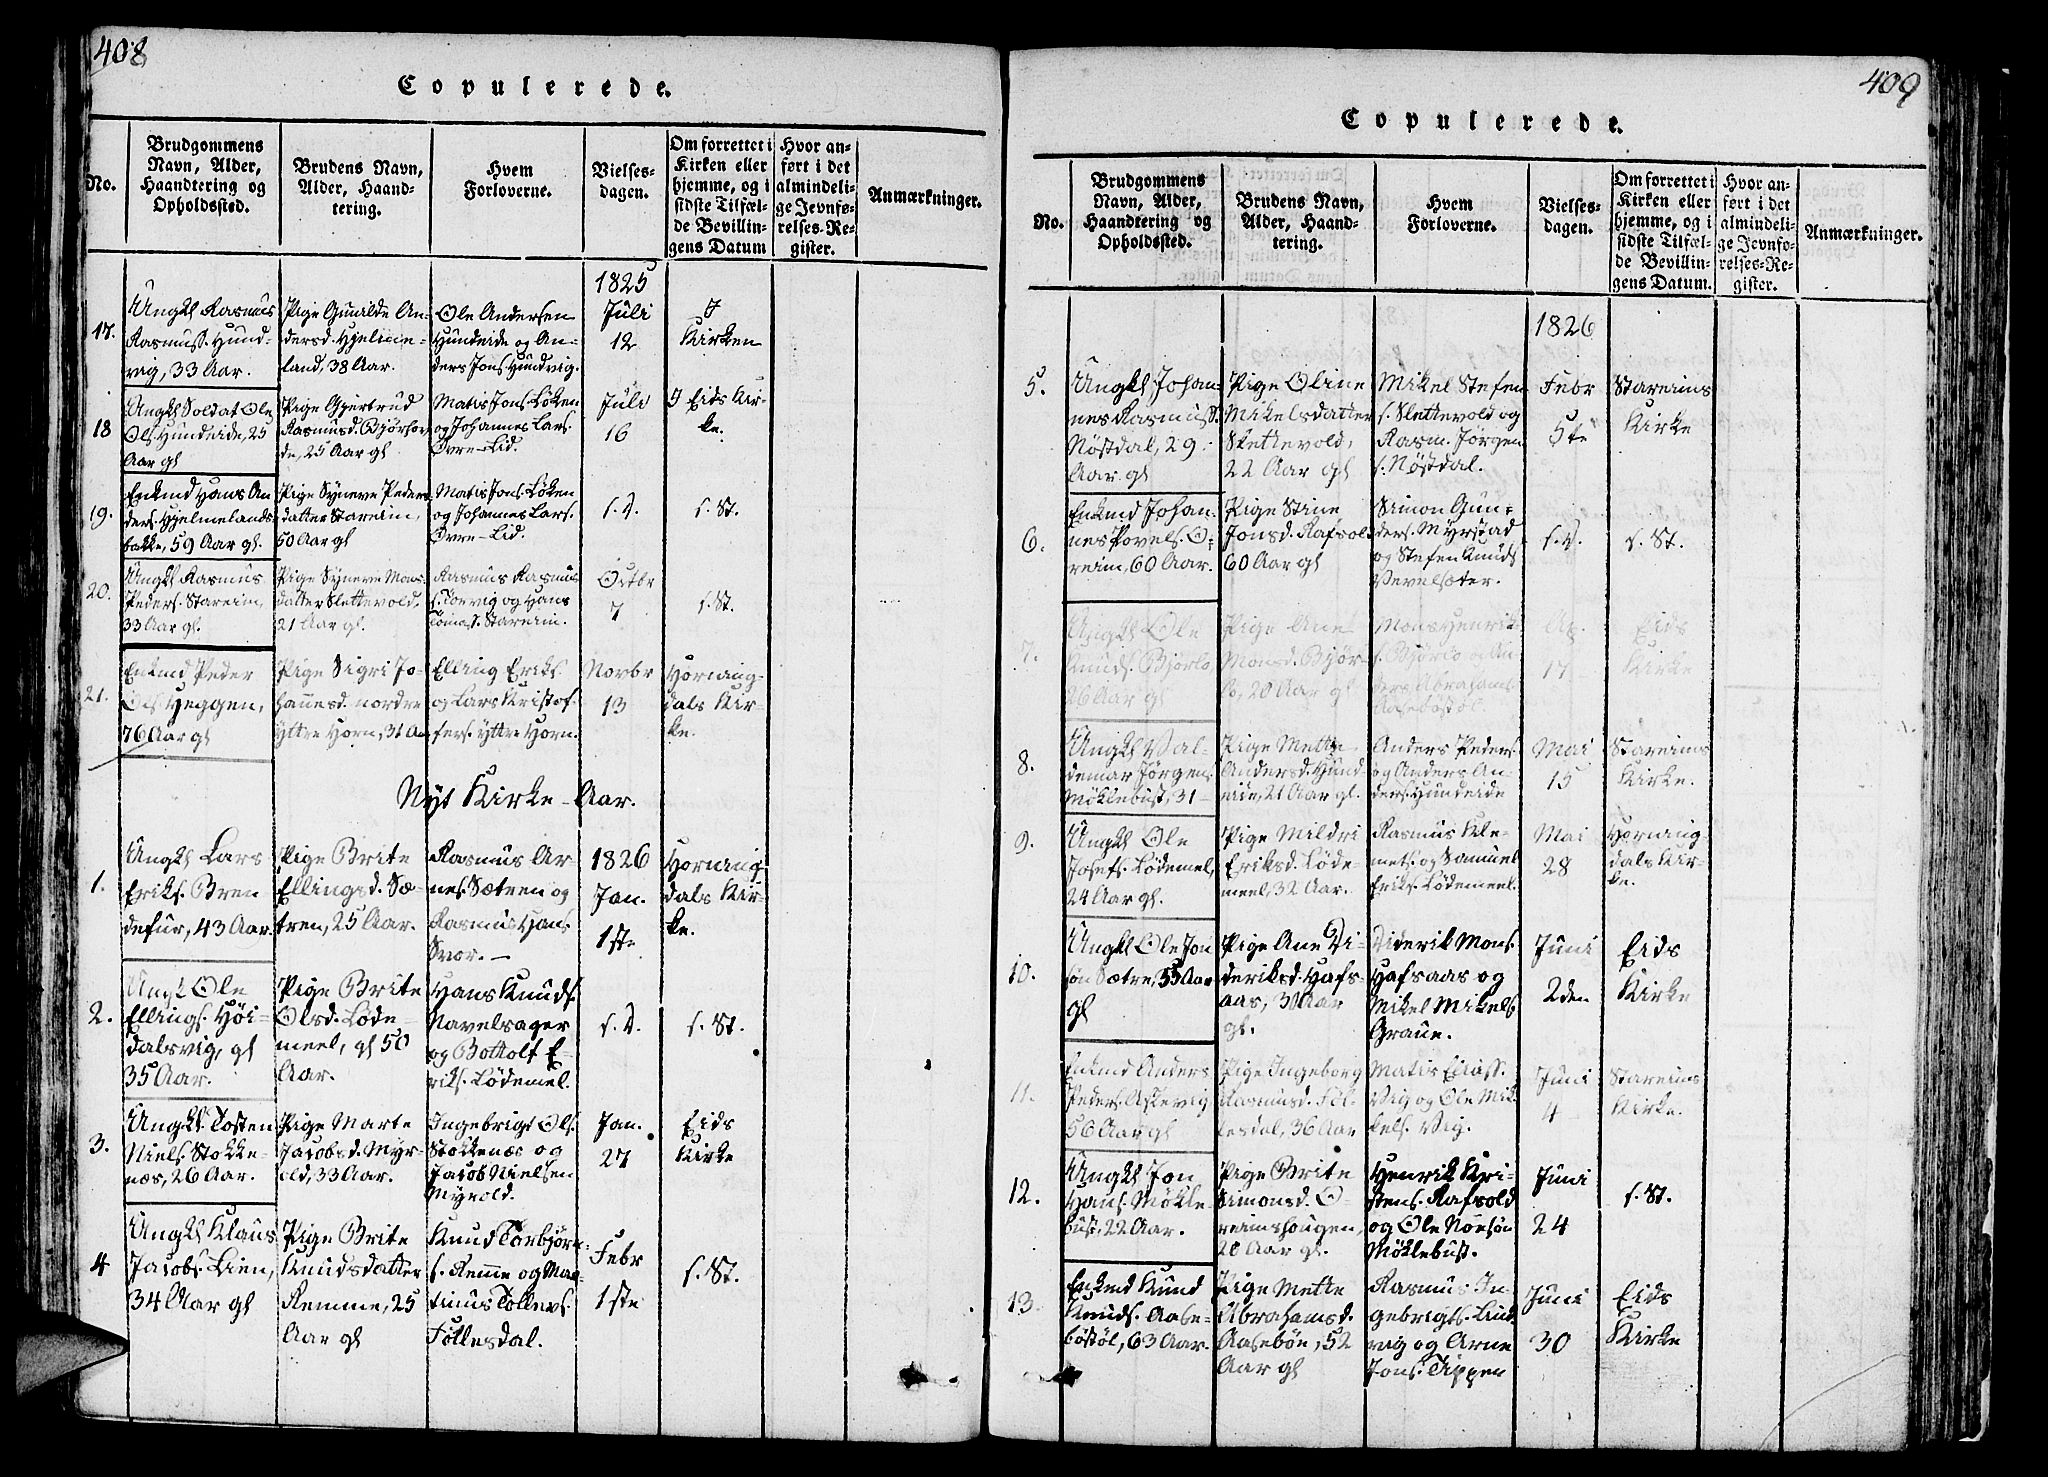 408
Copulerede.
No.
Brudgommens
Navn, Alder,
Haandtering og
Opholdssted.
Brudens Navn,
Alder, Haand-
tering.
Hvem
Forloverne.
Vielses-
dagen.
Om forrettet i
Kirken eller
hjemme, og i
sidste Tilfæl-
de Bevillin-
gens Datum
Hvor an-
ført i det
almindeli-
ge Jevnfø-
relses-Re-
gister.
Anmærkninger.
1825
17.
Ungkl Rasmus
Rasmuss. Hund-
vig, 33 Aar.
Pige Gunilde An-
dersd. Hjelme-
land, 38 Aar.
Ole Andersen
Hundeide og An-
ders Jons. Hundvig.
Juli
12
I
Kirken
18
Ungkl Soldat Ole
Ols. Hundeide, 25
Aar gl
Pige Gjertrud
Rasmusd. Bjørlo-
de, 25 Aar gl
Matis Jons. Løken
og Johannes Lars.
Øvre-Lid.
Juli
16
I Eids Kir-
ke.
19.
Enkmd Hans An
ders. Hjelmelands-
bakke, 59 Aar gl.
Pige Syneve Peders
datter Stareim,
50 Aar gl
Matis Jons. Løken
og Johannes Lars.
Øvre-Lid.
s. D.
s. St.
20.
Ungkl Rasmus
Peders. Stareim,
33 Aar gl.
Pige Syneve Mons
datter Slettevold,
21 Aar gl.
Rasmus Rasmus
s. Torvig og Hans
Tomass. Stareim.
Octbr
7
s. St.
21.
Enkmd Peder
Ols. Heggen,
76 Aar gl
Pige Sigri Jo-
hannesd. nordre
Yttre Horn, 31 Aar
Elling Eriks.
og Lars Kristof-
fers. yttre Horn.
Novbr
13
Horning-
dals Kir-
ke.
Nyt Kirke-Aar.
1.
Ungkl Lars
Eriks. Bren
defur, 43 Aar.
Pige Brite
Ellingsd. Sæ-
tren, 25 Aar.
Rasmus Ar-
nes. Sætren og
Rasmus Hans
Svor. -
1826
Jan.
1ste
Horning-
dals Kir-
ke.
2.
Ungkl Ole
Ellings. Høi-
dalsvig, gl
35 Aar.
Pige Brite
Olsd. Løde-
meel, gl 50
Aar.
Hans Knuds.
Navelsager
og Bottolf E-
riks. Lødemel.
s. D.
s. St.
3.
Ungkl. Tosten
Niels. Stokke-
næs, 26 Aar.
Pige Marte
Jacobsd. Myr-
old, 33 Aar.
Ingebrigt Ols.
Stokkenæs og
Jacob Nielsen
Myrold.
Jan.
27
Eids
Kirke
4
Ungkl Klaus
Jacobs. Lien,
34 Aar gl
Pige Brite
Knudsdatter
Remme, 25
Aar gl
Knud Torbjørn-
s. Remme og Mar-
tinus Tollevs.
Follesdal.
Febr
1ste
s. St.
409
Copulerede.
No.
Brudgommens
Navn, Alder,
Haandtering og
Opholdssted.
Brudens Navn,
Alder, Haand-
tering.
Hvem
Forloverne.
Vielses-
dagen.
Om forrettet i
Kirken eller
hjemme, og i
sidste Tilfæl-
de Bevillin-
gens Datum.
Hvor an-
ført i det
almindeli-
ge Jevnfø-
relses-Re-
gister.
Anmærkninger.
1826
5.
Ungkl Johan-
nes Rasmuss.
Nøstdal, 29
Aar gl
Pige Oline
Mikelsdatter
Slettevold,
22 Aar gl
Mikel Stefen
s. Slettevold og
Rasm. Jørgen
s. Nøstdal.
Febr
5te
Stareims
Kirke
6.
Enkmd Johan-
nes Povels. O-
reim, 60 Aar.
Pige Stine
Jonsd. Rafsold
60 Aar gl
Simon Gun-
ders. Myrstad
og Stefen Knuds
Vevelsæter.
s. D.
s. St.
7.
Ungkl Ole
Knuds. Bjørlo
26 Aar gl
Pige Ane
Monsd. Bjør-
lo, 20 Aar gl
Mons Henrik
s. Bjørlo og An-
ders Abrahams.
Aasebøstøl.
Ap.
17
Eids
Kirke
8.
Ungkl Val-
demar Jørgens.
Møklebust, 31 -
Pige Mette
Andersd. Hund-
eide, 21 Aar gl.
Anders Peders.
og Anders An-
ders. Hundeide
Mai
15
Stareims
Kirke.
9.
Ungkl Ole
Josefs. Lødemel,
24 Aar gl.
Pige Mildri
Eriksd. Løde-
meel, 32 Aar.
Rasmus Kle-
mets. og Samuel
Eriks. Lødemeel.
Mai
28
Horning-
dals Kir-
ke.
10.
Ungkl Ole Jon
søn Sætre, 35 Aar
gl
Pige Ane Di-
deriksd. Hafs-
aas, 30 Aar
gl.
Diderik Mons.
Hafsaas og
Mikel Mikels
Graue.
Juni
2den
Eids
Kirke
11.
Enkmd Anders
Peders. Askevig
56 Aar gl
Pige Ingeborg
Rasmusd. Fol-
lesdal, 36 Aar
Matis Eliass.
Vig og Ole Mik-
kels. Vig.
Juni
4
Stareims
Kirke.
12.
Ungkl Jon
Hans. Møkle-
bust, 22 Aar.
Pige Brite
Simonsd. O-
reimshougen,
20 Aar gl.
Henrik Kri-
stens. Rafsold
og Ole
Møklebust.
Juni
24
s. St.
13.
Enkmd Knud
Knuds. Aase-
bøstøl, 63 Aar.
Pige Mette
Abrahamsd.
Aasebøe, 52
Aar gl
Rasmus In-
gebrigts. Lind
vig og Arne
Jons. Tippen
Juni
30
Eids
Kirke